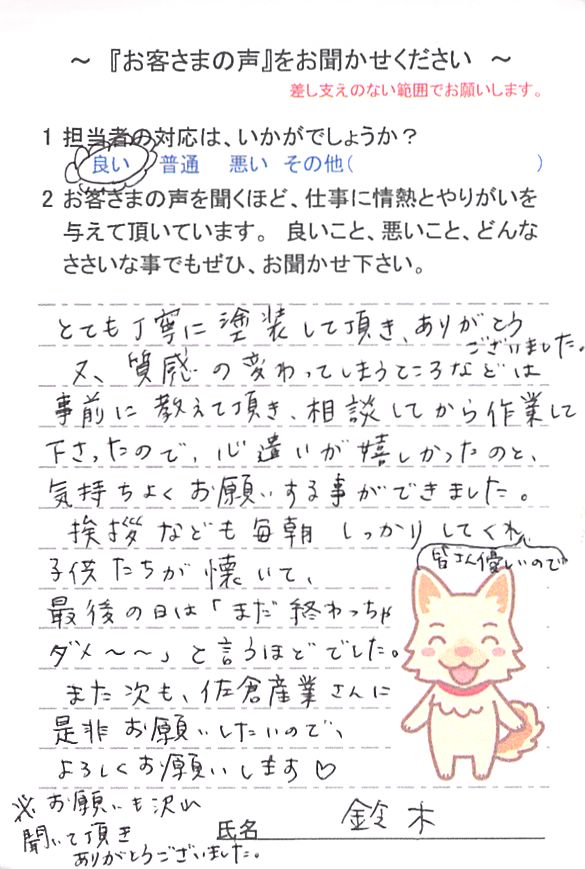 ～ 『お客さまの声』をお聞かせください ～
差し支えのない範囲でお願いします。
1 担当者の対応は、いかがでしょうか？
良い 普通 悪い その他( )
2 お客さまの声を聞くほど、仕事に情熱とやりがいを
与えて頂いています。 良いこと、悪いこと、どんな
ささいな事でもぜひ、お聞かせ下さい。
とても丁寧に塗装して頂き、ありがとう
ございました。
又、質感の変わってしまうところなどは
事前に教えて頂き、相談してから作業して
下さったので、心遣いが嬉しかったのと、
気持ちよくお願いする事ができました。
挨拶なども毎朝しっかりしてくれ、
皆さん優しいので
子供たちが懐いて、
最後の日は「まだ終わっちゃ
ダメ～～」と言うほどでした。
また次も、佐倉産業さんに
是非お願いしたいので、
よろしくお願いします♡
※お願いも沢山
聞いて頂き
ありがとうございました。
氏名 鈴木